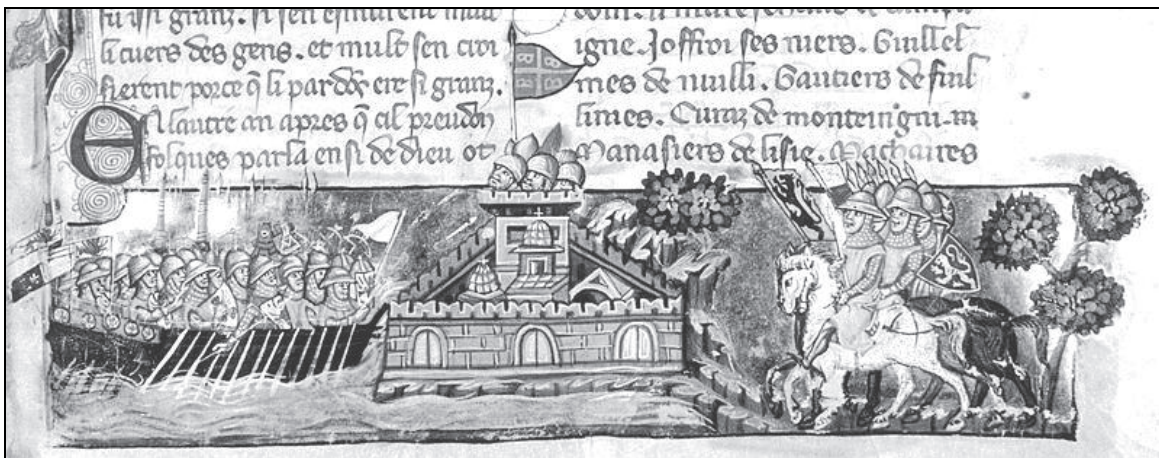 fu issi granz. si sen esmurent mult
li cuers des gens. et mult sen croi
sierent porce q̃ li pardõs ere si granz.
En lautre an apres q̃ cil preudon
folques parla ensi de dieu ot
doin. li mareschaus de champa
igne. Joffroi ses niers. Guillel
mes de nuilli. Gautiers de fuil
limes. Euraz de monteingni.
Manasiers de lisle. Machaires